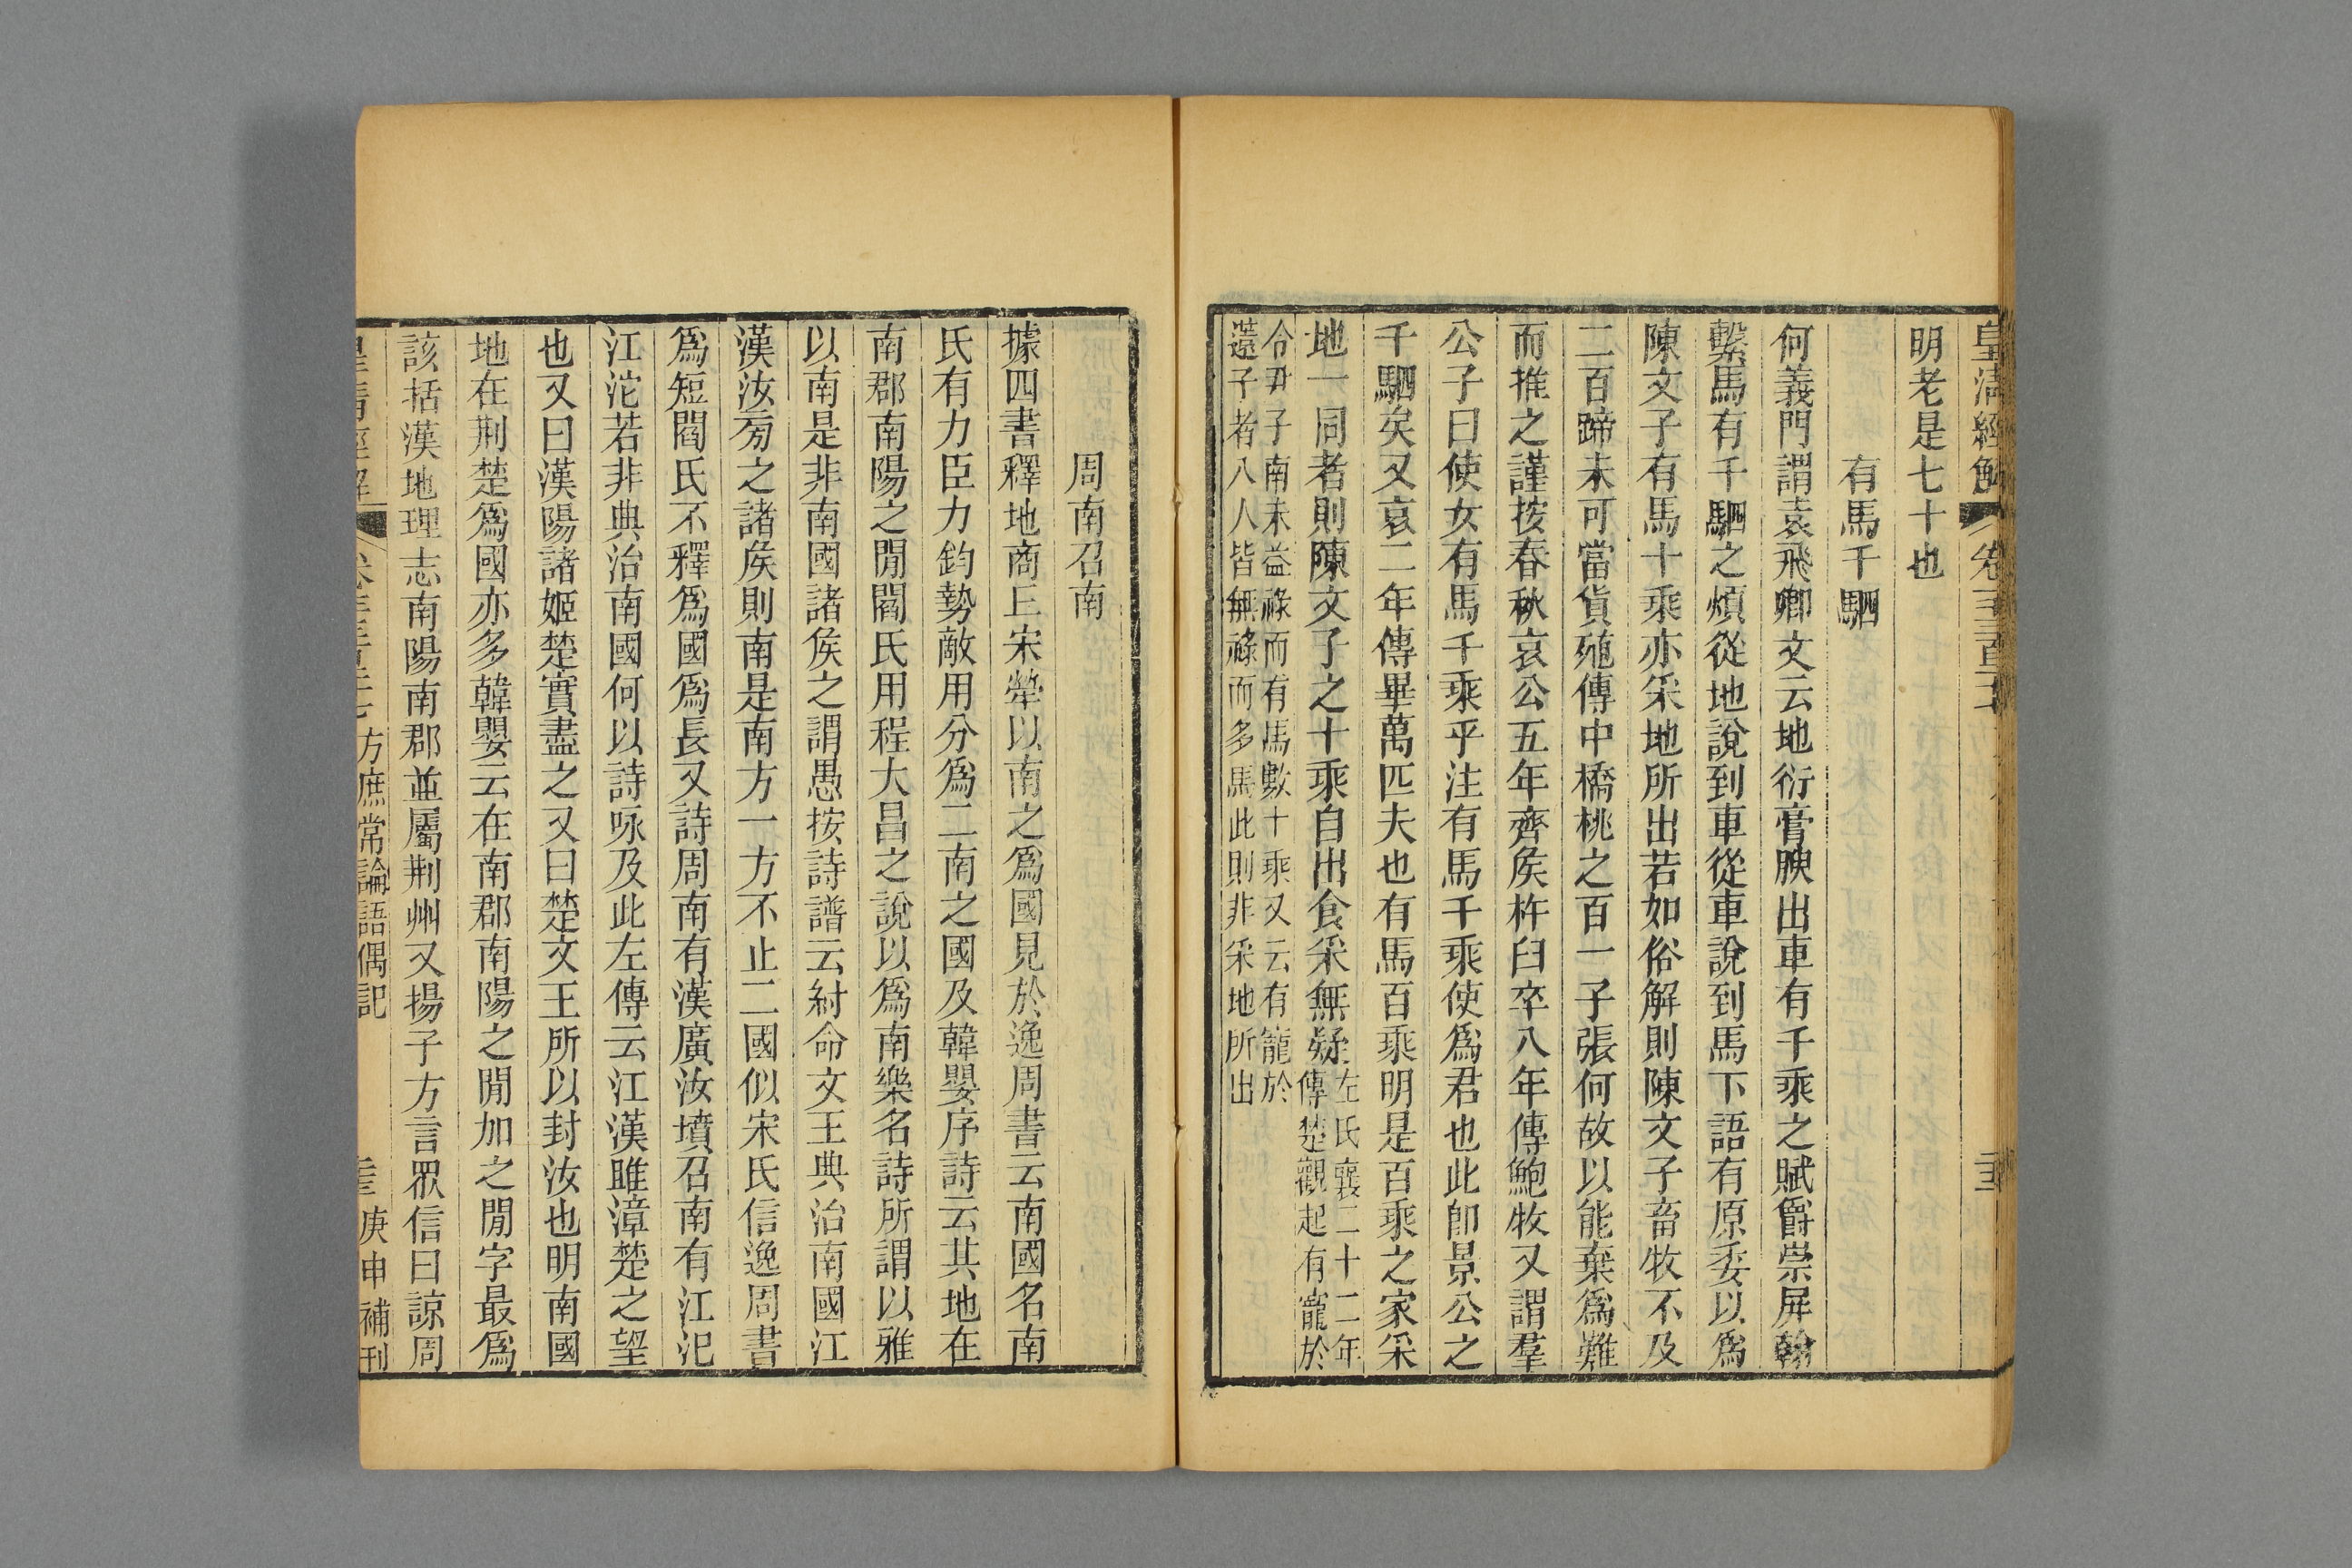 皇清經解 卷
明老是七十也
有馬千駟
何義門謂袁飛卿文云地衍膏腴出車有千乘之賦爵崇屏翰
繫馬有千駟之煩從地說到車從車說到馬下語有原委以爲
陳文子有馬十乘亦采地所出若如俗解則陳文子畜牧不及
二百蹄未可當貨殖傳中橋桃之百一子張何故以能棄爲難
而推之謹按春秋哀公五年齊矦杵臼卒八年傳鮑牧又謂羣
公子曰使女有馬千乘乎注有馬千乘使爲君也此卽景公之
千駟矣又哀二年傳畢萬匹夫也有馬百乘明是百乘之家采
地一同者則陳文子之十乘自出食采無疑左氏襄二十二年
傳楚觀起有寵於
令尹子南未益祿而有馬數十乘又云有寵於
薳子者八人皆無祿而多馬此則非采地所出
周南召南
據四書釋地商丘宋犖以南之爲國見於逸周書云南國名南
氏有力臣力鈞勢敵用分爲二南之國及韓嬰序詩云其地在
南郡南陽之閒閻氏用程大昌之說以爲南樂名詩所謂以雅
以南是非南國諸矦之謂愚按詩譜云紂命文王典治南國江
漢汝旁之諸矦則南是南方一方不止二國似宋氏信逸周書
爲短閻氏不釋爲國爲長又詩周南有漢廣汝墳召南有江汜
江沱若非典治南國何以詩咏及此左傳云江漢雎漳楚之望
也又曰漢陽諸姬楚實盡之又曰楚文王所以封汝也明南國
地在荆楚爲國亦多韓嬰云在南郡南陽之閒加之閒字最爲
該括漢地理志南陽南郡並屬荆州又揚子方言衆信曰諒周
方庶常論語偶記 庚申補刊